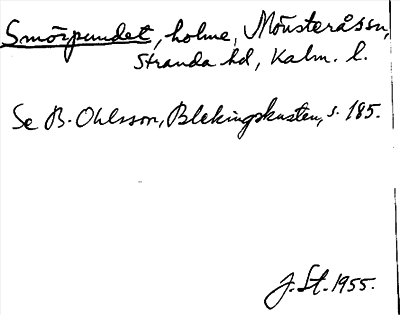 Smörpundet, holme, Mönsterås sn,
Stranda hd, Kalm. l.
Se B. Ohlsson, Blekingskusten, s. 185.
J. St. 1955.